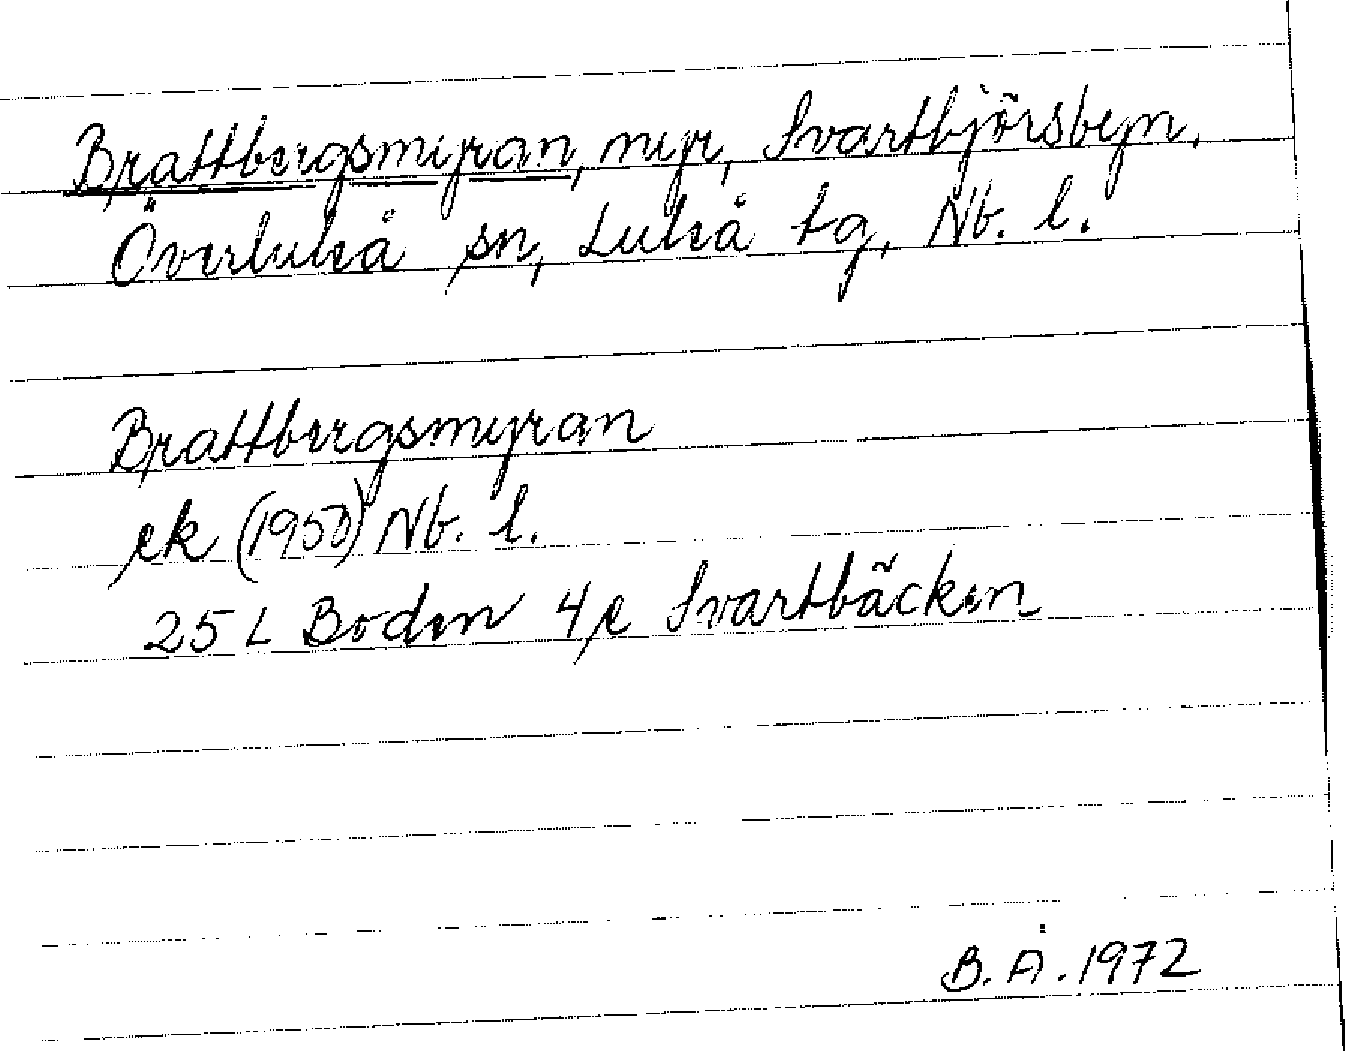 Brattbergsmyran, myr, Svartbjörsbyn,
Överluleå sn, Luleå tg, Nb. l.
Brattbergsmyran
ek (1953) Nb. l.
25 L Boden 4 e Svartbäcken
B. Å. 1972